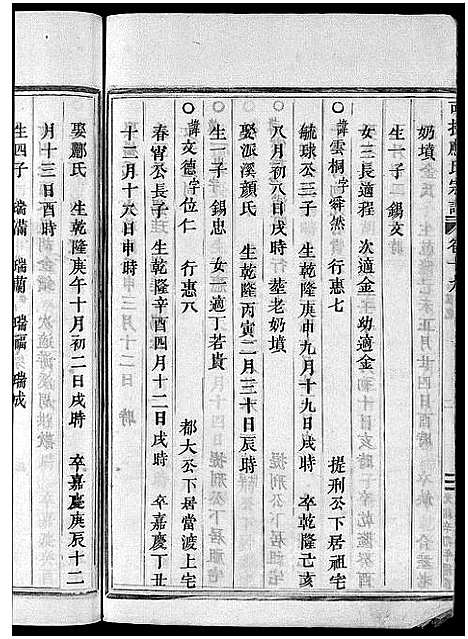 氏宗譜 卷十九
奶墳
生一子 錫文
女三長適程 次適金 幼適金
○諱雲桐字舜然 行惠七 提刑公下居祖宅
毓球公三子 生乾隆庚申九月十九日戌時 卒乾隆己亥
八月初八日戌時 塟老奶墳
娶派溪顏氏 生乾隆丙寅二月三十日辰時
生一子 錫忠 女適丁若貴
○諱文德字位仁 行惠八 都大公下居當渡上宅
春宵公長子 生乾隆辛酉四月十二日戌時 卒嘉慶丁丑
十二月十六日申時
娶鄺氏 生乾隆庚午十月初二日戌時 卒嘉慶庚辰十二
月十三日酉時
生四子 瑞滿 瑞蘭 瑞福 瑞成